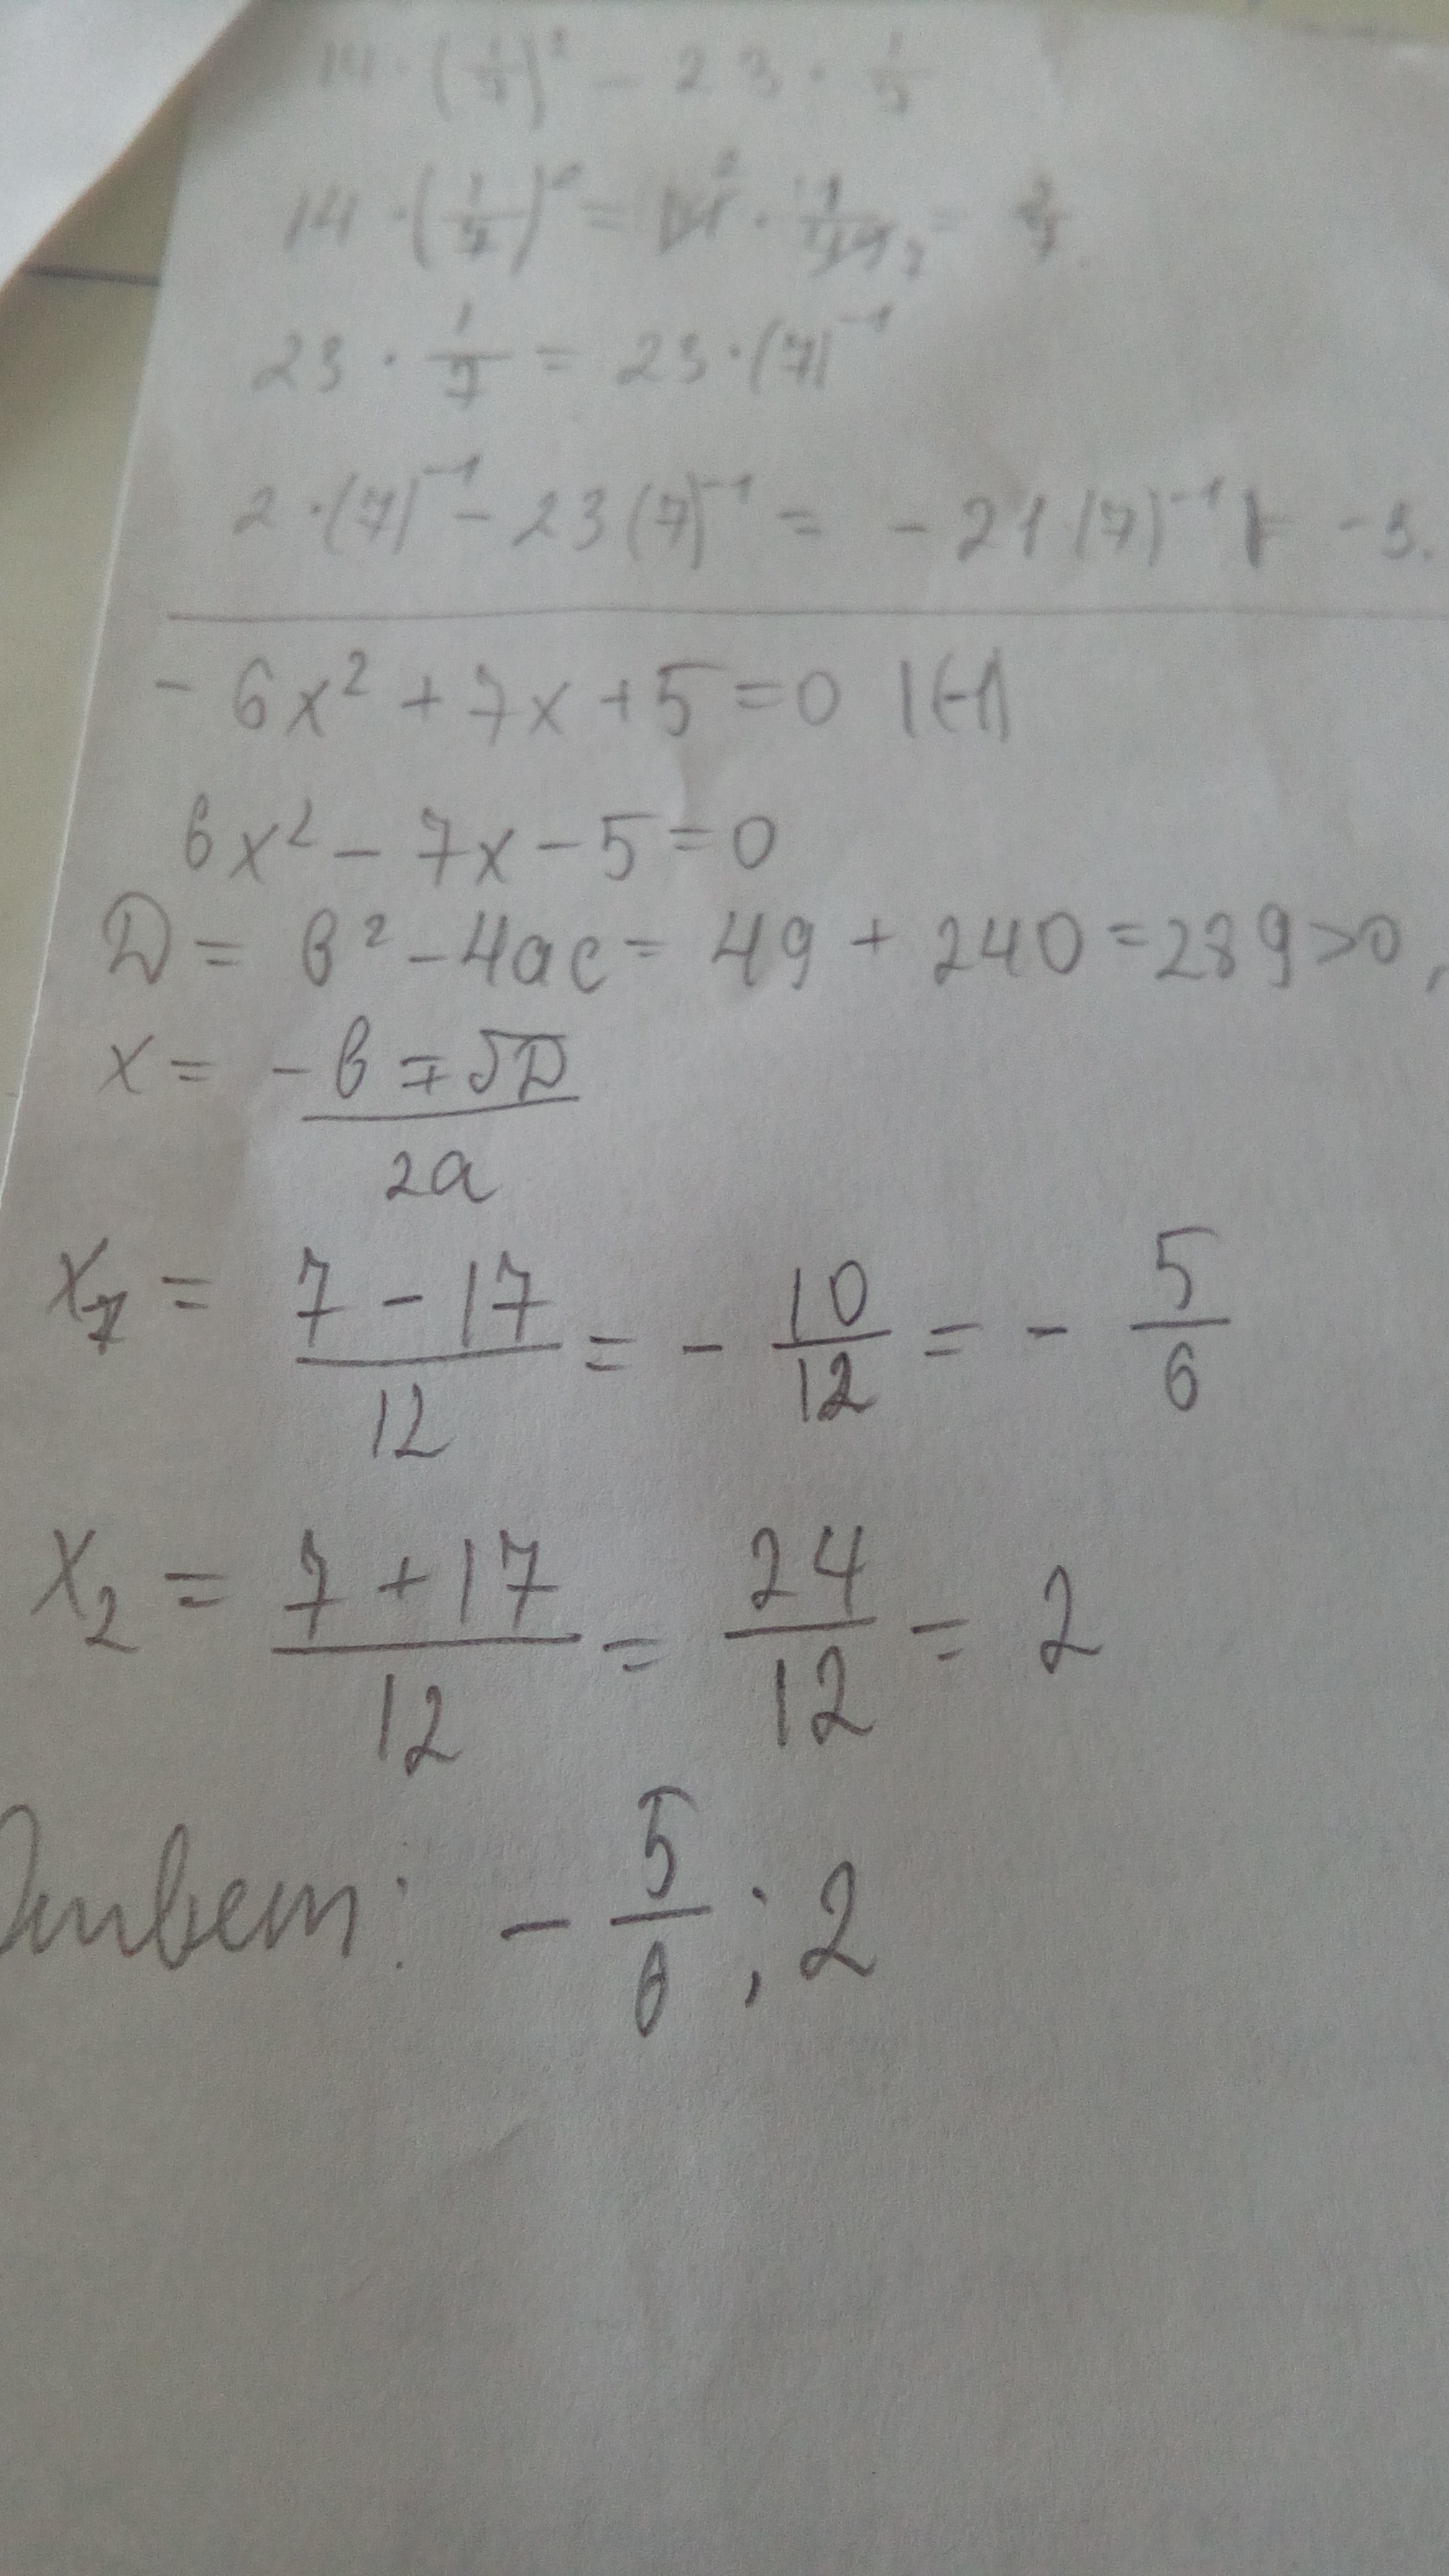 14 · (1/7)² - 23 · 1/7
14 · (1/7)² = 14² · 1/49₇ = 2/7.
23 · 1/7 = 23 · (7)⁻¹
2 · (7)⁻¹ - 23 (7)⁻¹ = - 21 (7)⁻¹ = -3.
- 6x² + 7x + 5 = 0 | (-1)
6x² - 7x - 5 = 0
D = b² - 4ac = 49 + 240 = 289 > 0,
x = -b ∓ √D / 2a
x₁ = 7 - 17 / 12 = - 10/12 = - 5/6
x₂ = 7 + 17 / 12 = 24/12 = 2
Ответ: - 5/6 ; 2